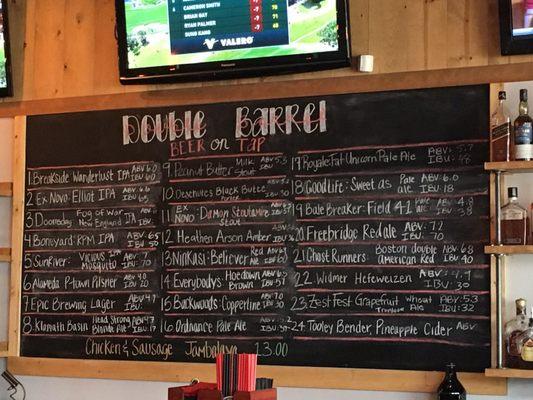 CAMERON SMITH -7 70
BRIAN GAY -7 71
RYAN PALMER -7 68
SUNG KANG
VALERO
Double Barrel
BEER on TAP
1. Breakside Wanderlust IPA ABV 6.0 IBU 60
2. Ex Novo: Elliot IPA ABV 6.6 IBU 65
3. Doomsday Fog of War New England IPA ABV IBU
4. Boneyard: RPM IPA ABV 6.5 IBU 50
5. Sunriver: Vicious Mosquito IPA ABV IBU 70
6. Alameda P-town Pilsner ABV 4.0 IBU 20
7. Epic Brewing Lager ABV 4.7 IBU
8. Klamath Basin Head Strong Blonde Ale ABV 4.7 IBU 17
9. Peanut Butter Milk Stout ABV 5.5 IBU
10. Deschutes Black Butte ABV IBU 30
11. Ex Novo: Damon Stoutamire Stout ABV IBU
12. Heathen Arson Amber ABV IBU
13. Ninkasi: Believer Red Ale ABV IBU
14. Everybody's: Hoedown Brown ABV IBU
15. Backwoods: Coppertine ABV IBU
16. Ordnance Pale Ale ABV IBU
17. Royale: Fat Unicorn Pale Ale ABV 5.7 IBU 48
18. Good Life: Sweet as Pale ale ABV 6.0 IBU 18
19. Bale Breaker: Field 41 Pale ale ABV 4.8 IBU 38
20. Freebridge Red ale ABV 7.2 IBU 70
21. Ghost Runners: Boston double American Red ABV 6.8 IBU 40
22. Widmer Hefeweizen ABV 4.9 IBU 30
23. Zest Fest Grapefruit Wheat ABV 5.3 IBU 32
24. Tooley Bender Pineapple Cider ABV
Chicken & Sausage Jambalaya 13.00